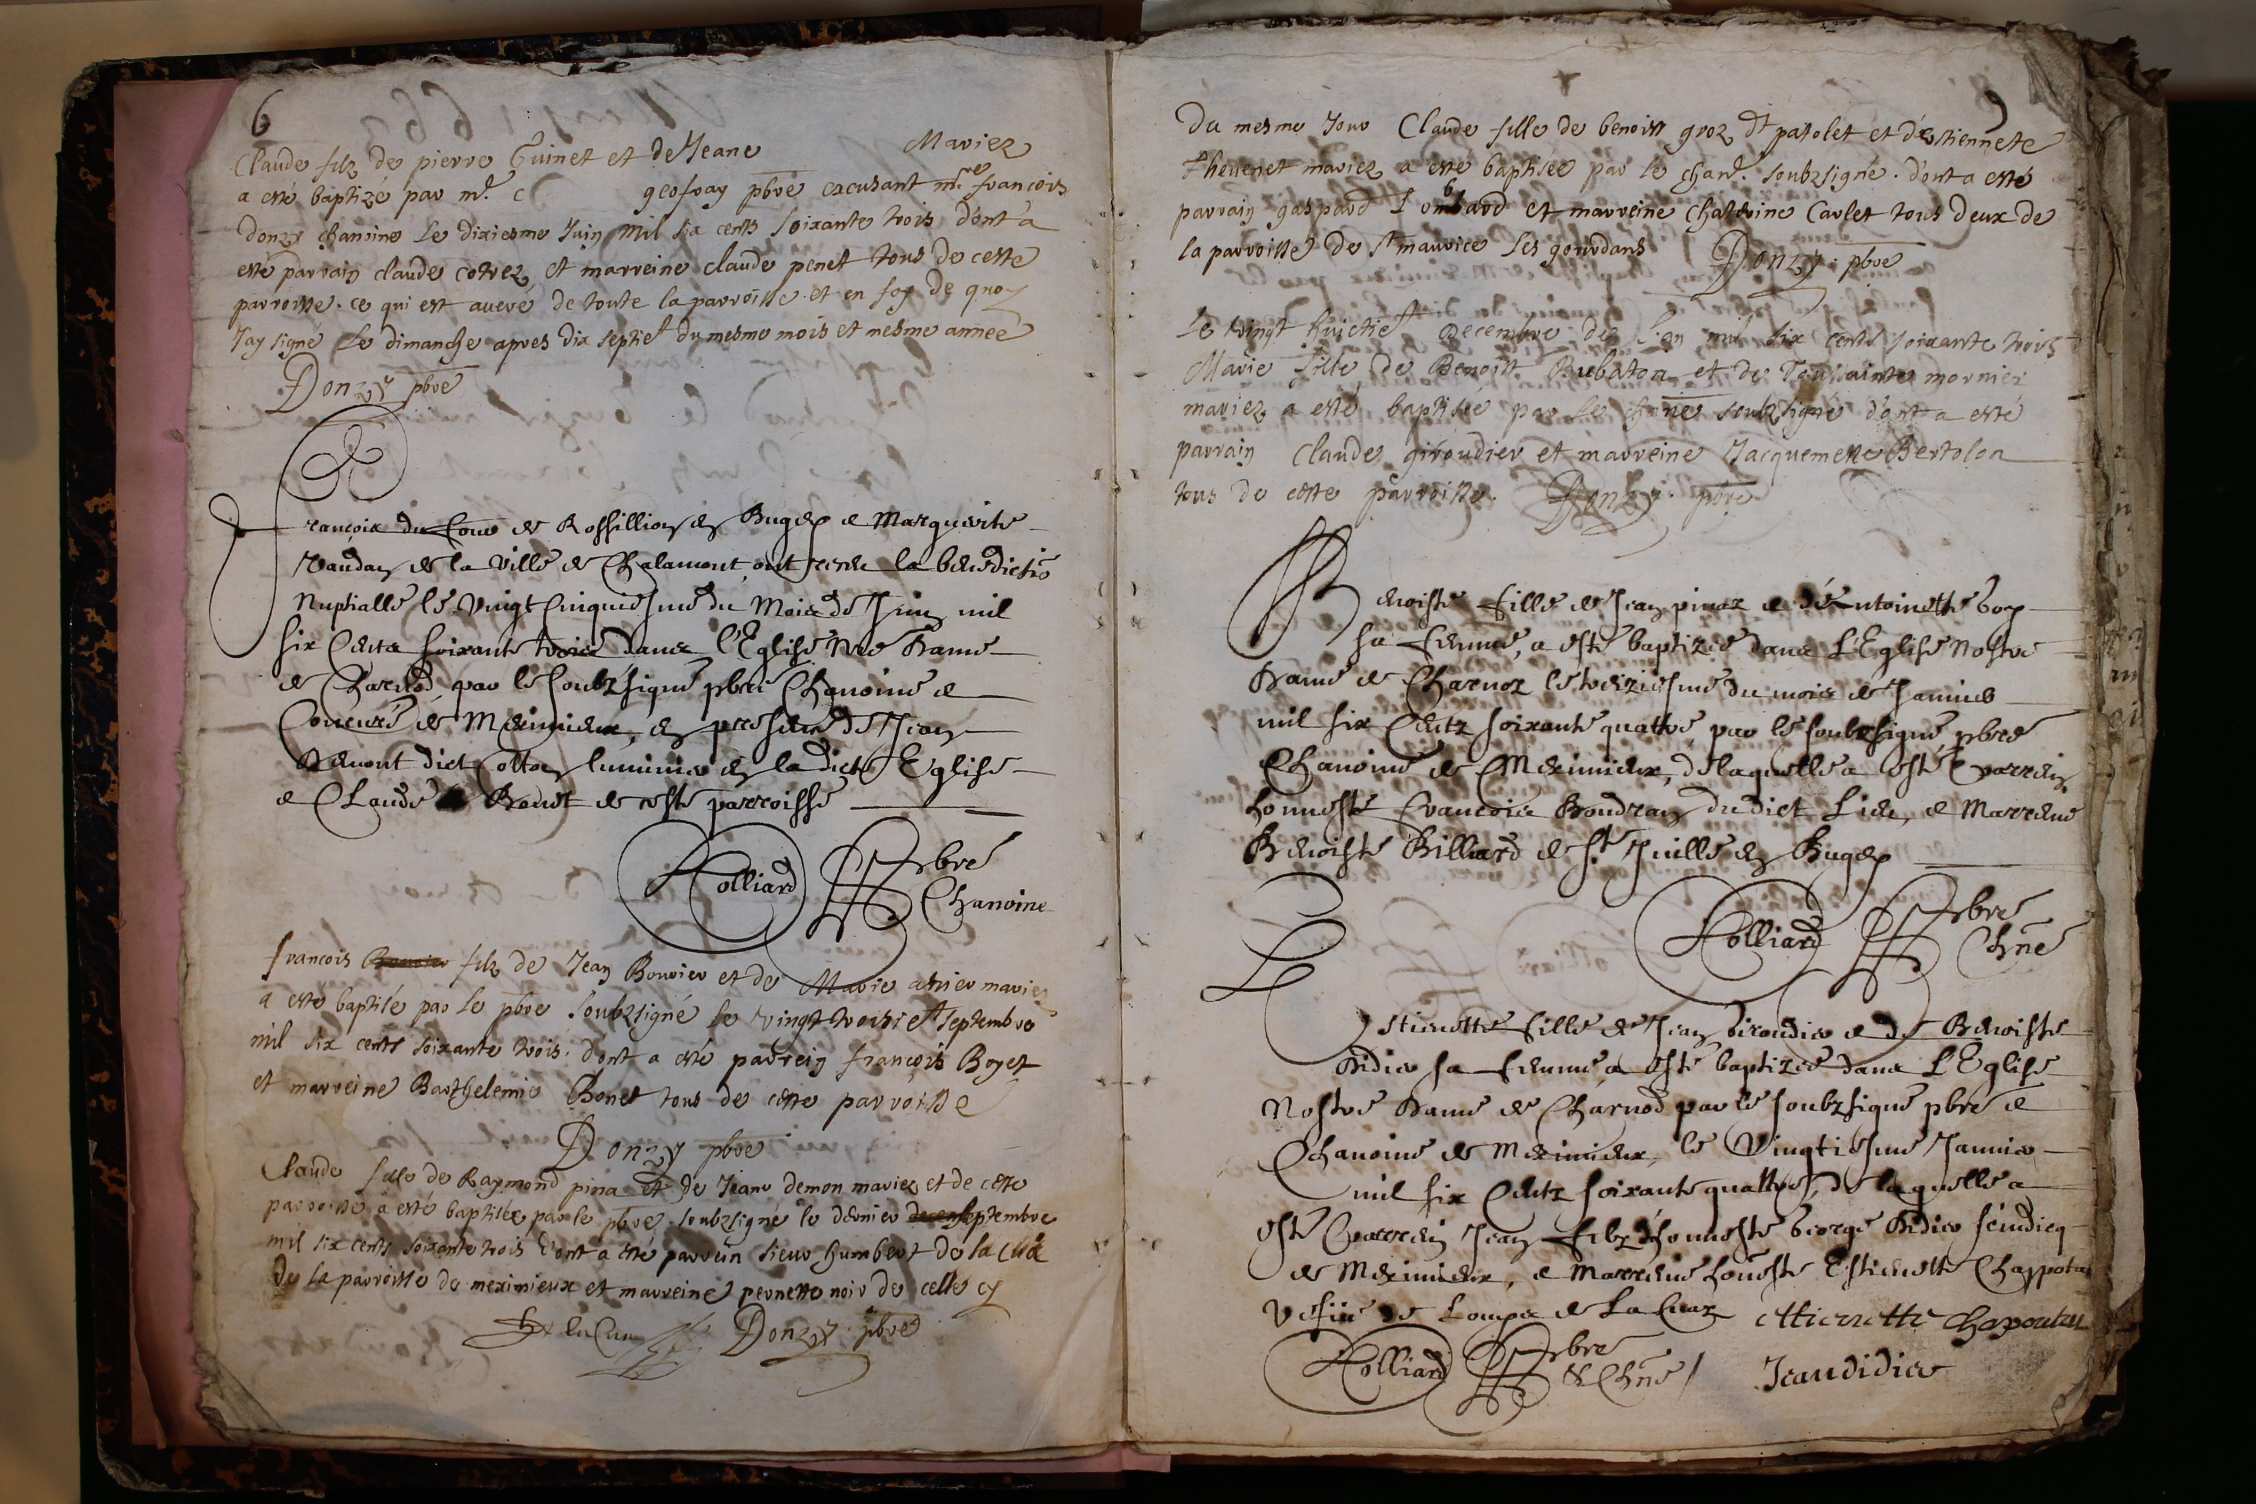 6
Claude filz de pierre Guinet et de Jeane Mariez
a esté baptizé par mre. c geofray pbre excusant mre françois
donzy chanoine le dixiesme Juin mil six cents soixante trois dont a
esté parrain claude cotrez et marreine claude penet tous de ceste
parroisse. ce qui est averé de toute la parroisse. et en foy de quoy
J'ay signé le dimanche apres dix septiet du mesme mois et mesme annee
Donzy pbre
François du four de Rossillion en Bugey & Marguerite
Vaudan de la ville de Chalamont, ont receu la benedictiõ
Nuptialle le Vingt Cinquiesme du Mois de Juin mil
six Cents soixante trois dans l'Eglise Nre Dame
de Charnod, par le soubzsigné pbre Chanoine &
Coneuré de Meximieux, en presence de Jean
Demont dict Cotton luminier en la dicte Eglise
& Claude Bonet de ceste parroisse
Holliard Pbre
Chanoine
françois Bouvier filz de Jean Bouvier et de Marie asnier mariez
a este baptisé par le pbre soubzsigné le vingt troisiet septembre
mil six cents soixante trois. dont a esté parrein françois Boyet
et marreine Barthelemie Bonet tous de cette parroisse
Donzy pbre
Claude fille de Raymond pina et de Jeane demon mariez et de cette
parroisse a esté baptisée par le pbre soubzsigné le dernier septembre
mil six cents soixante trois dont a esté parrein sieur humbert de la cua
de la parroisse de meximieux et marreine pernette noir de celle cy
Donzy pbre
Du mesme jour Claude fille de benoist groz dt patolet et d'estiennete
Thevenet mariez a esté baptisée par le chane. soubzsigné. dont a esté
parrain gaspard Lombard et marreine Chaterine Carlet tous deux de
la parroisse de st maurice les gourdans Donzy. pbre
Le vingt huictiet Decembre de l'an mil six cents soixante trois
Marie fille de Benoist Rubaton et de Toussainte mornier
mariez a esté baptisée par le chane soubzsigné dont a esté
parrain Claude giroudier et marreine Jacquemette Bertolon
tous de cette parroisse. Donzy. pbre
Benoiste fille de Jean pinaz & d'Antoinette boy
sa femme, a esté baptizée dans L'Eglise Nostre
Dame de Charnoz le treiziesme du mois de Janvier
mil six Centz soixante quattre par le soubzsigné pbre
Chanoine de Meximieux, de laquelle a esté Parrein
honneste François Boudran du dict Lieu, & Marrene
Benoiste Billiard de St Jullie en Bugey
Holliard Pbre
Chne
Estienette fille de Jean Giroudier & de Benoiste
Didier sa femme a esté baptizée dans L'Eglise
Nostre Dame de Charnod par le soubzsigné pbre &
Chanoine de Meximieux, le Vingtiesme Janvier
mil six Centz soixante quattre, de laquelle a
esté Parrein Jean filz d'honneste George Didier scindicq
de Meximieux, & Marrene honeste Estienette Chappotan
vefve de Loupe de La Cuaz ettienette chapoutan
Holliard Pbre
& Chne / Jean didier